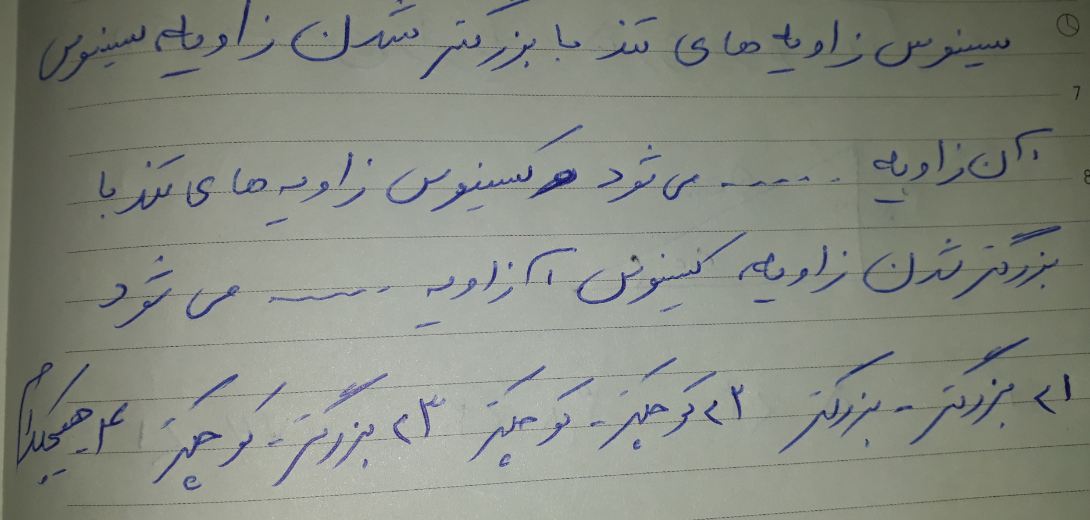 سینوس زاویه های تند با بزرگتر شدن زاویه سینوس
7
آن زاویه ...... می شود و کسینوس زاویه های تند با
8
بزرگتر شدن زاویه کسینوس آن زاویه ...... می شود
۱) بزرگتر - بزرگتر ۲) کوچکتر - کوچکتر ۳) بزرگتر - کوچکتر ۴) هیچکدام